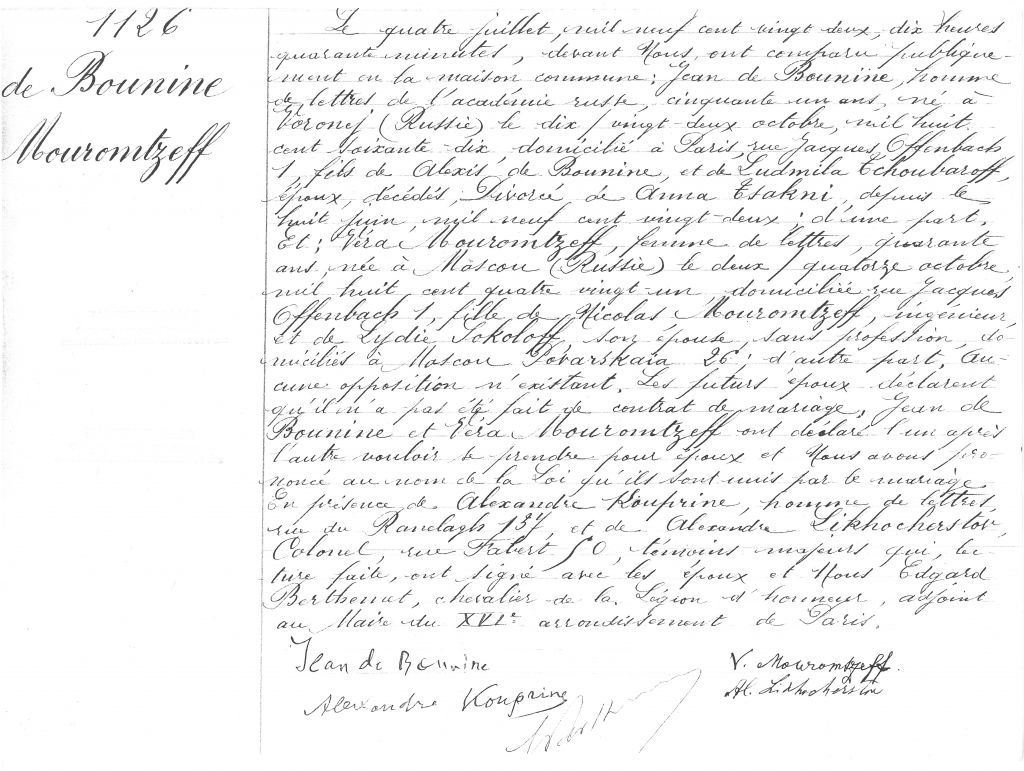 1126
de Bounine
Mouromtzeff
Le quatre juillet, mil neuf cent vingt deux, dix heures
quarante minutes, devant Nous, ont comparu publique-
ment en la maison commune: Jean de Bounine, homme
de lettres de l'académie russe, cinquante un ans, né à
Voronej (Russie) le dix/vingt-deux octobre, mil huit
cent soixante-dix, domicilié à Paris, rue Jacques Offenbach
1, fils de Alexis de Bounine, et de Ludmila Tchoubaroff,
époux, décédés, Divorcé de Anna Tsakni, depuis le
huit juin, mil neuf cent vingt deux; d'une part.
Et: Véra Mouromtzeff, femme de lettres, quarante
ans, née à Moscou (Russie) le deux/quatorze octobre,
mil huit cent quatre vingt-un, domiciliée rue Jacques
Offenbach 1, fille de Nicolas Mouromtzeff, ingénieur,
et de Lydie Sokoloff, son épouse, sans profession, do-
miciliés à Moscou Povarskaïa 26; d'autre part. Au-
cune opposition n'existant. Les futurs époux déclarent
qu'il n'a pas été fait de contrat de mariage. Jean de
Bounine et Véra Mouromtzeff ont déclaré l'un après
l'autre vouloir se prendre pour époux et Nous avons pro-
noncé au nom de la Loi qu'ils sont unis par le mariage.
En présence de Alexandre Kouprine, homme de lettres,
rue du Ranelagh 137, et de Alexandre Likhocherstov,
Colonel, rue Fabert 50, témoins majeurs qui, lec-
ture faite, ont signé avec les époux et Nous Edgard
chevalier de la Légion d'honneur, adjoint
au Maire du XVIe arrondissement de Paris.
Jean de Bounine
V. Mouromtzeff.
Alexandre Kouprine
Al. Likhocherstov